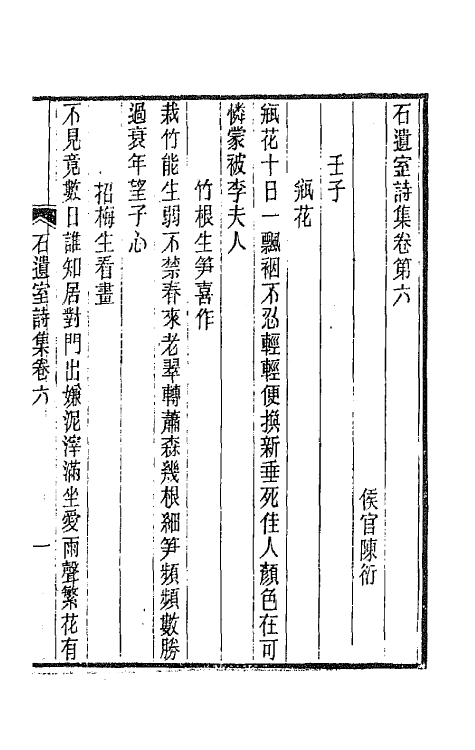 石遺室詩集卷第六
侯官陳衍
壬子
瓶花
瓶花十日一飄裀不忍輕輕便換新垂死佳人顏色在可
憐蒙被李夫人
竹根生笋喜作
栽竹能生弱不禁春來老翠轉蕭森幾根細笋頻頻數勝
過衰年望子心
招梅生看畫
不見竟數日誰知居對門出嫌泥滓滿坐愛雨聲繁花有
石遺室詩集卷六
一